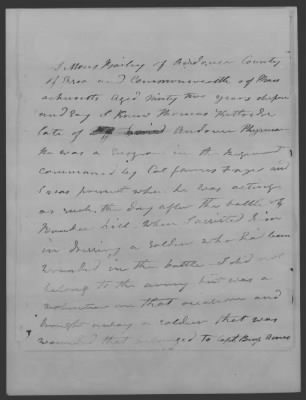 I Moses Bailey of Andover County
of Essex and Commonwealth of Mass
achusetts Aged Ninty two years depose
and Say I Knew Thomas Kittredge
late of Andover Physician
He was a Surgeon in the Regiment
commanded by Col James Frye and
I was present when he was acting
as such, the day after the battle of
Bunker hill when I assisted him
in dressing a soldier who had been
wounded in the battle I did not
belong to the army but was a
volunteer on that occasion and
brought away a soldier that was
wounded that belonged to Capt Benj Ames